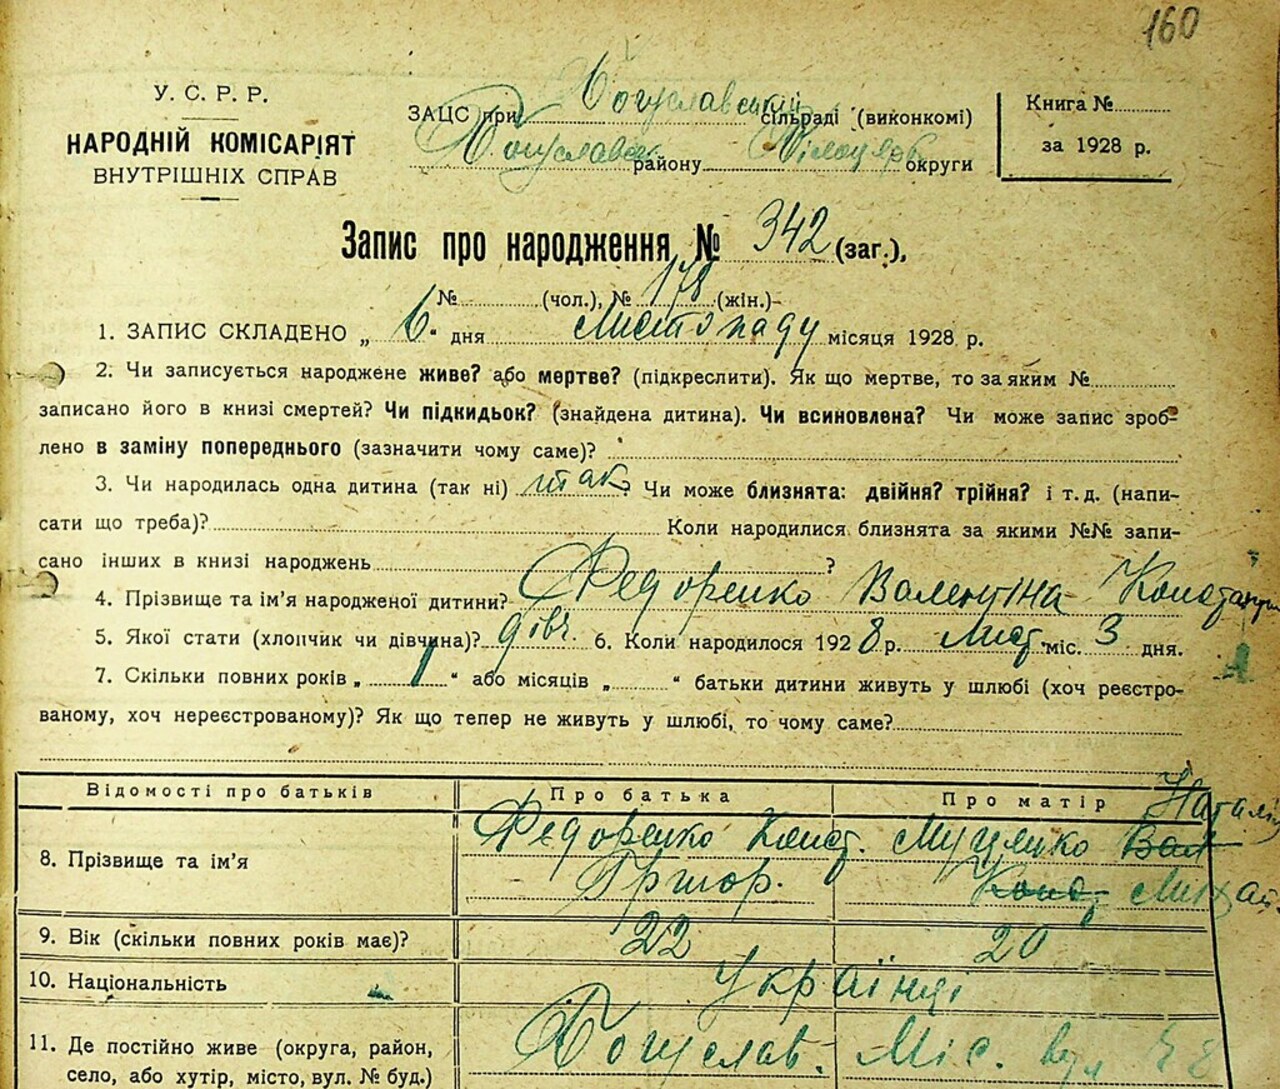 160
У. С. Р. Р.
НАРОДНІЙ КОМІСАРІЯТ
ВНУТРІШНІХ СПРАВ
ЗАЦС при Богуславській сільраді (виконкомі)
Богуславськ. району Білоцерк. округи
Книга №
за 1928 р.
Запис про народження № 342 (заг.),
№ (чол.), № 178 (жін.)
1. ЗАПИС СКЛАДЕНО „ 6 " дня Листопаду місяця 1928 р.
2. Чи записується народжене живе? або мертве? (підкреслити). Як що мертве, то за яким №
записано його в книзі смертей? Чи підкидьок? (знайдена дитина). Чи всиновлена? Чи може запис зроб-
лено в заміну попереднього (зазначити чому саме)?
3. Чи народилась одна дитина (так ні) так? Чи може близнята: двійня? трійня? і т. д. (напи-
сати що треба)? Коли народилися близнята за якими №№ запи-
сано інших в книзі народжень ?
4. Прізвище та ім'я народженої дитини? Федоренко Валентіна
5. Якої стати (хлопчик чи дівчина)? дівч. 6. Коли народилося 1928 р. Лист. міс. 3 дня.
7. Скільки повних років „ 1 " або місяців „ " батьки дитини живуть у шлюбі (хоч реєстро-
ваному, хоч нереєстрованому)? Як що тепер не живуть у шлюбі, то чому саме?
Відомості про батьків Про батька Про матір
8. Прізвище та ім'я Федоренко Конст. Григор. Наталія Михай.
9. Вік (скільки повних років має)? 22 20
10. Національність Українці
11. Де постійно живе (округа, район, Богуслав. Міс. вул
село, або хутір, місто, вул. № буд.)